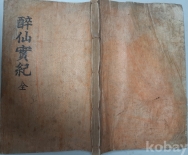 醉仙實紀
全
kobay